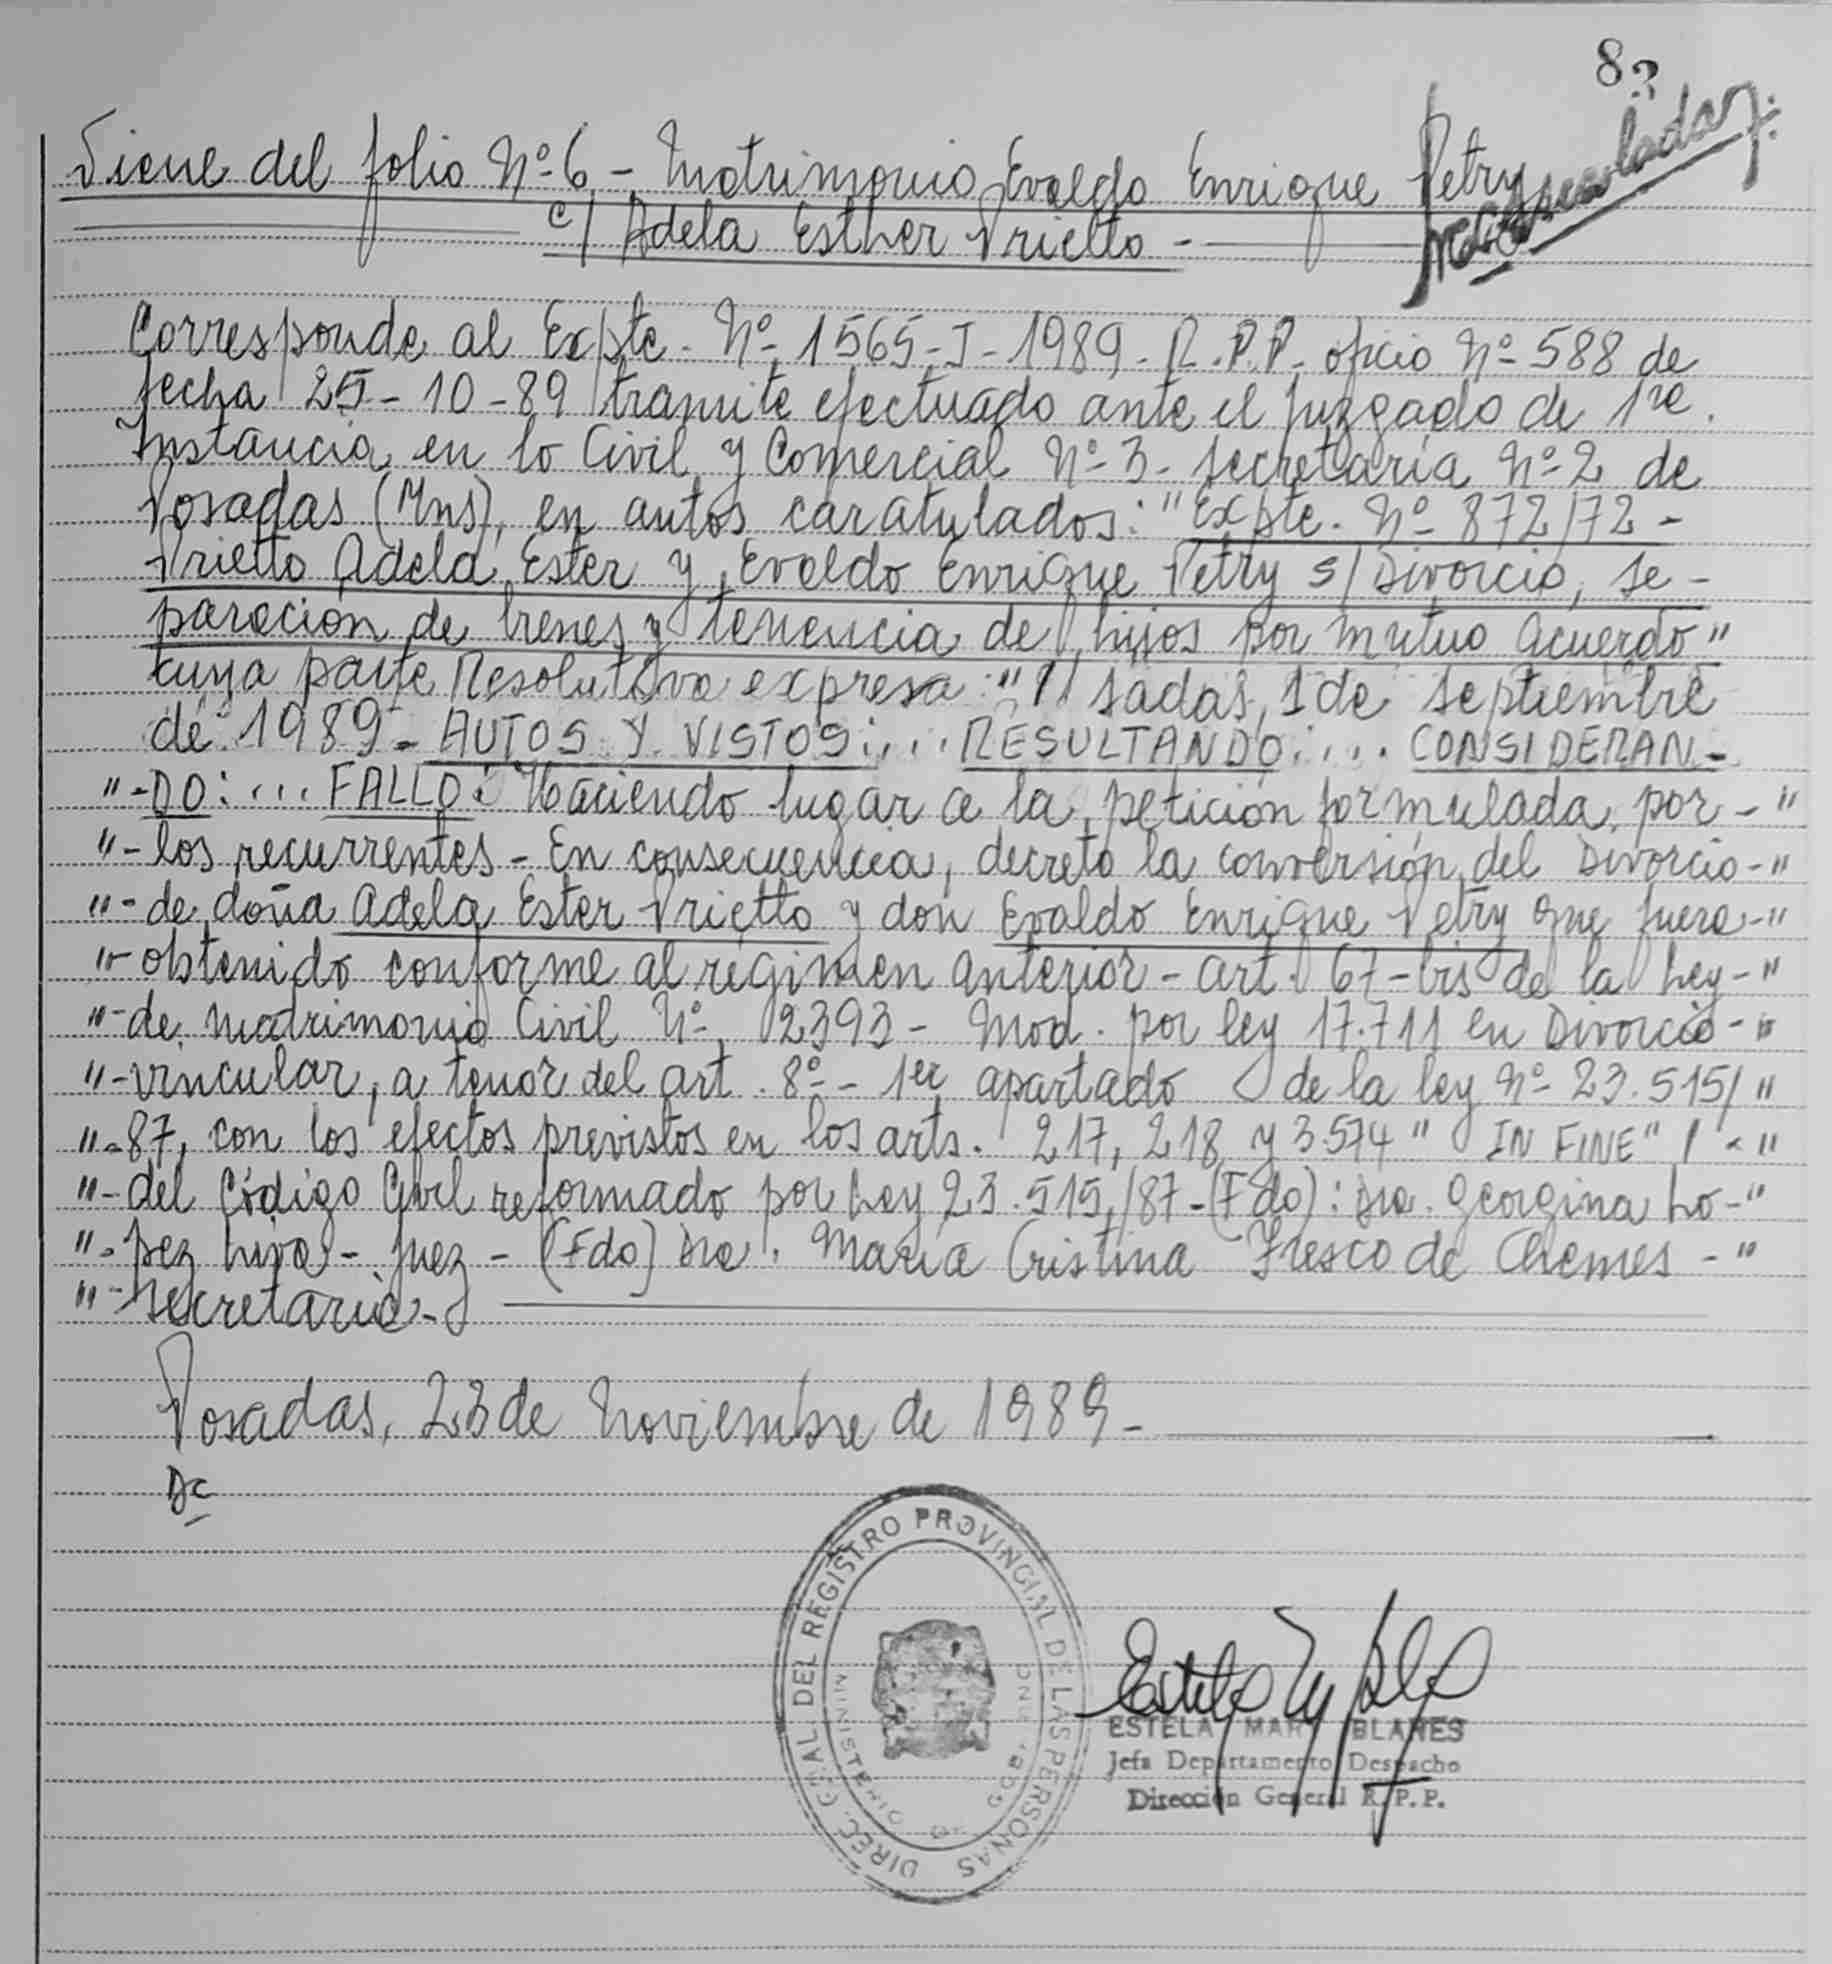 8
Viene del folio Nº 6 - Matrimonio Evaldo Enrique Petry
c/ Adela Esther Prietto -
Corresponde al Expte. Nº 1565-I-1989- R.P.P. oficio Nº 588 de
fecha 25-10-89 tramite efectuado ante el juzgado de 1ra.
Instancia en lo Civil y Comercial Nº 3- secretaría Nº 2 de
Posadas (Mns), en autos caratulados: "Expte. Nº 872/72 -
Prietto Adela Ester y Evaldo Enrique Petry s/ Divorcio, se-
paración de bienes y tenencia de hijos por mutuo acuerdo"
cuya parte Resolutiva expresa: "// sadas, 1 de septiembre
de 1989 - AUTOS Y VISTOS:... RESULTANDO:.... CONSIDERAN-
"-DO:... FALLO: Haciendo lugar a la petición formulada por-"
"-los recurrentes - En consecuencia, decreto la conversión del Divorcio-"
"-de doña Adela Ester Prietto y don Evaldo Enrique Petry que fuera-"
"-obtenido conforme al régimen anterior - art. 67-bis de la Ley-"
"-de matrimonio Civil Nº 2393 - Mod. por ley 17.711 en Divorcio-"
"-vincular, a tenor del art. 8º - 1er apartado de la ley Nº 23.515/"
"-87, con los efectos previstos en los arts. 217, 218 y 3.574 "IN FINE" / -"
"-del Código Civil reformado por Ley 23.515/87-(Fdo): Dra. Georgina Lo-"
"-pez Liva - juez - (Fdo) Dra. María Cristina Fresco de Chemes -"
"-secretaria-
Posadas, 23 de Noviembre de 1989 -
Dc
DIREC. GRAL DEL REGISTRO PROVINCIAL DE LAS PERSONAS
MINISTERIO DE GOBIERNO
ESTELA BLANES
Jefa Departamento Despacho
Dirección General R.P.P.